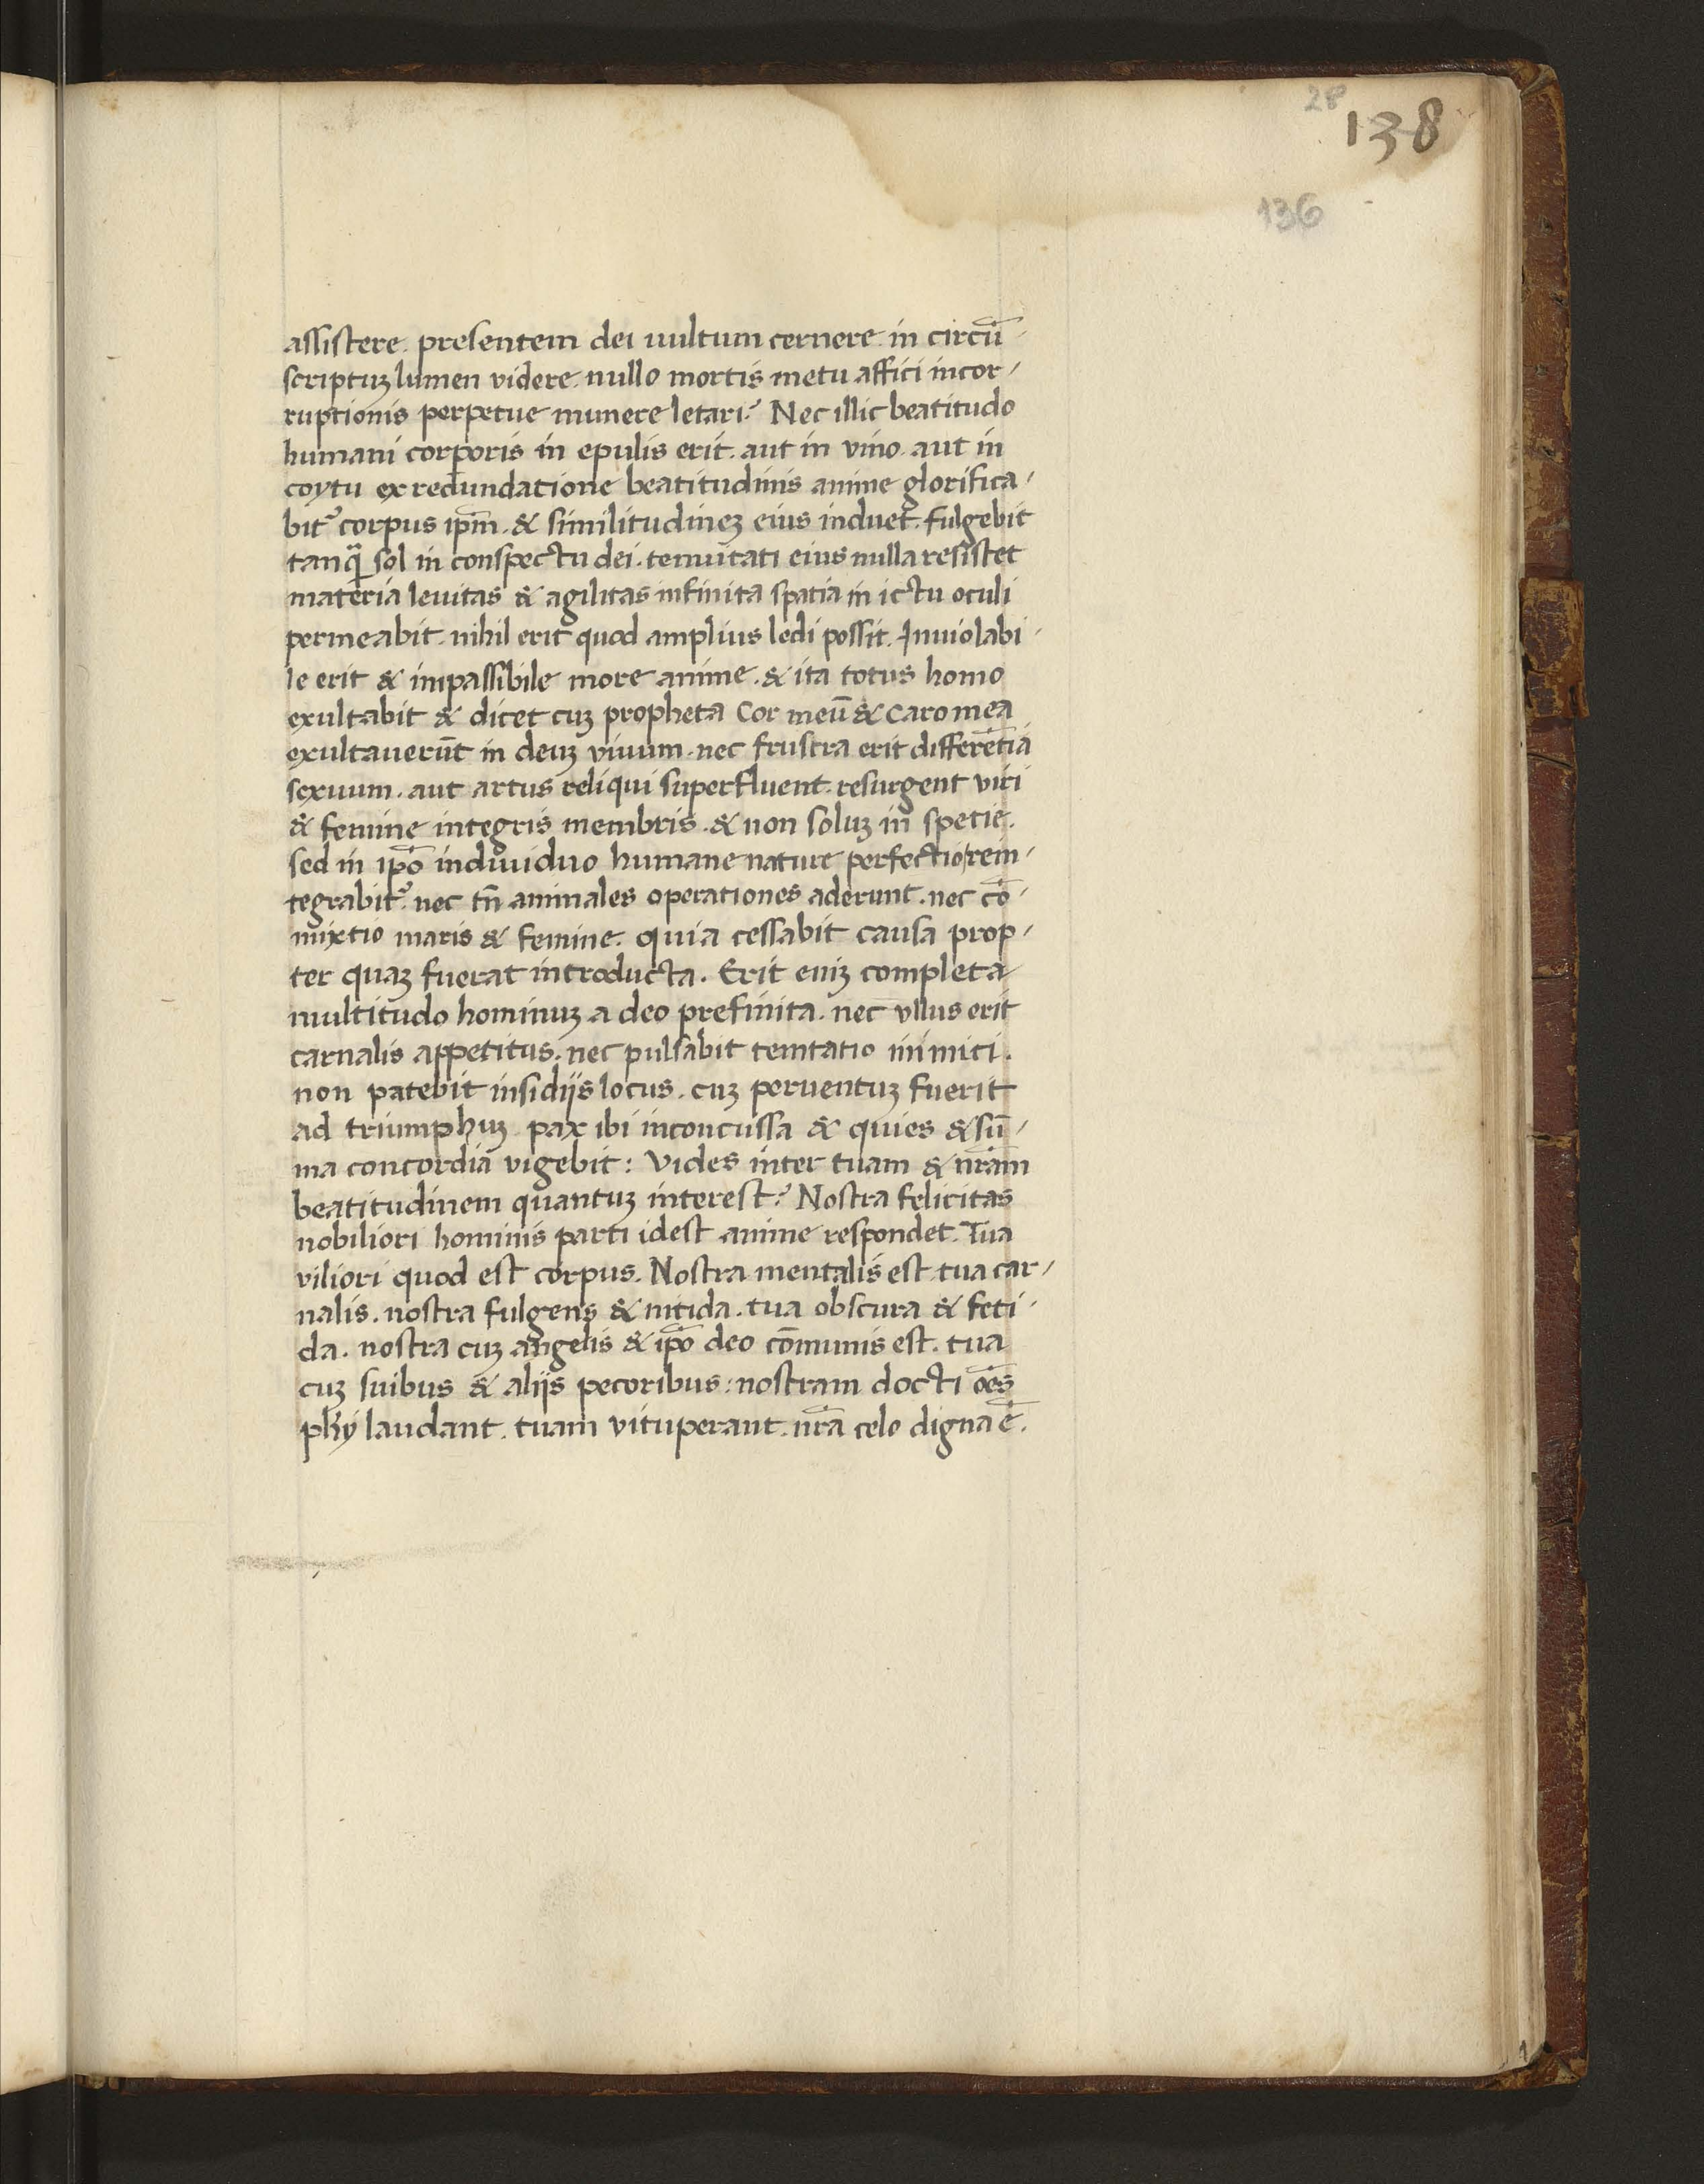 28
138
136
assistere. presentem dei uultum cernere. in circū-
scriptuꝫ lumen videre. nullo mortis metu affici incor-
ruptionis perpetue munere letari? Nec illic beatitudo
humani corporis in epulis erit. aut in vino. aut in
coytu ex redundatione beatitudinis anime glorifica-
bit᷑ corpus ip̄m. & similitudineꝫ eius induet. fulgebit
tanq̄ sol in conspectu dei. tenuitati eius nulla resistet
materia leuitas & agilitas infinita spatia in ictu oculi
permeabit. nihil erit quod amplius ledi possit. Inuiolabi-
le erit & impassibile more anime. & ita totus homo
exultabit & dicet cuꝫ propheta Cor meū & caro mea
exultauerūt in deuꝫ viuum. nec frustra erit differētia
sexuum. aut artus reliqui superfluent. resurgent viri
& femine integris membris. & non soluꝫ in spetie.
sed in ip̄o indiuiduo humane nature perfectio rein-
tegrabit᷑. nec tn̄ animales operationes aderunt. nec cō-
mixtio maris & femine. quia cessabit causa prop-
ter quaꝫ fuerat introducta. Erit eniꝫ completa
multitudo hominuꝫ a deo prefinita. nec vllus erit
carnalis appetitus. nec pulsabit temtatio inimici.
non patebit insidijs locus. cuꝫ peruentuꝫ fuerit
ad triumphuꝫ pax ibi inconcussa & quies & sū-
ma concordia vigebit: Vides inter tuam & nr̄am
beatitudinem quantuꝫ interest? Nostra felicitas
nobiliori hominis parti idest anime respondet. Tua
viliori quod est corpus. Nostra mentalis est tua car-
nalis. nostra fulgens & nitida. tua obscura & feti-
da. nostra cuꝫ angelis & ip̄o deo cōmunis est. tua
cuꝫ suibus & alijs pecoribus: nostram docti oēs
phȳ laudant. tuam vituperant. nr̄a celo digna ē.